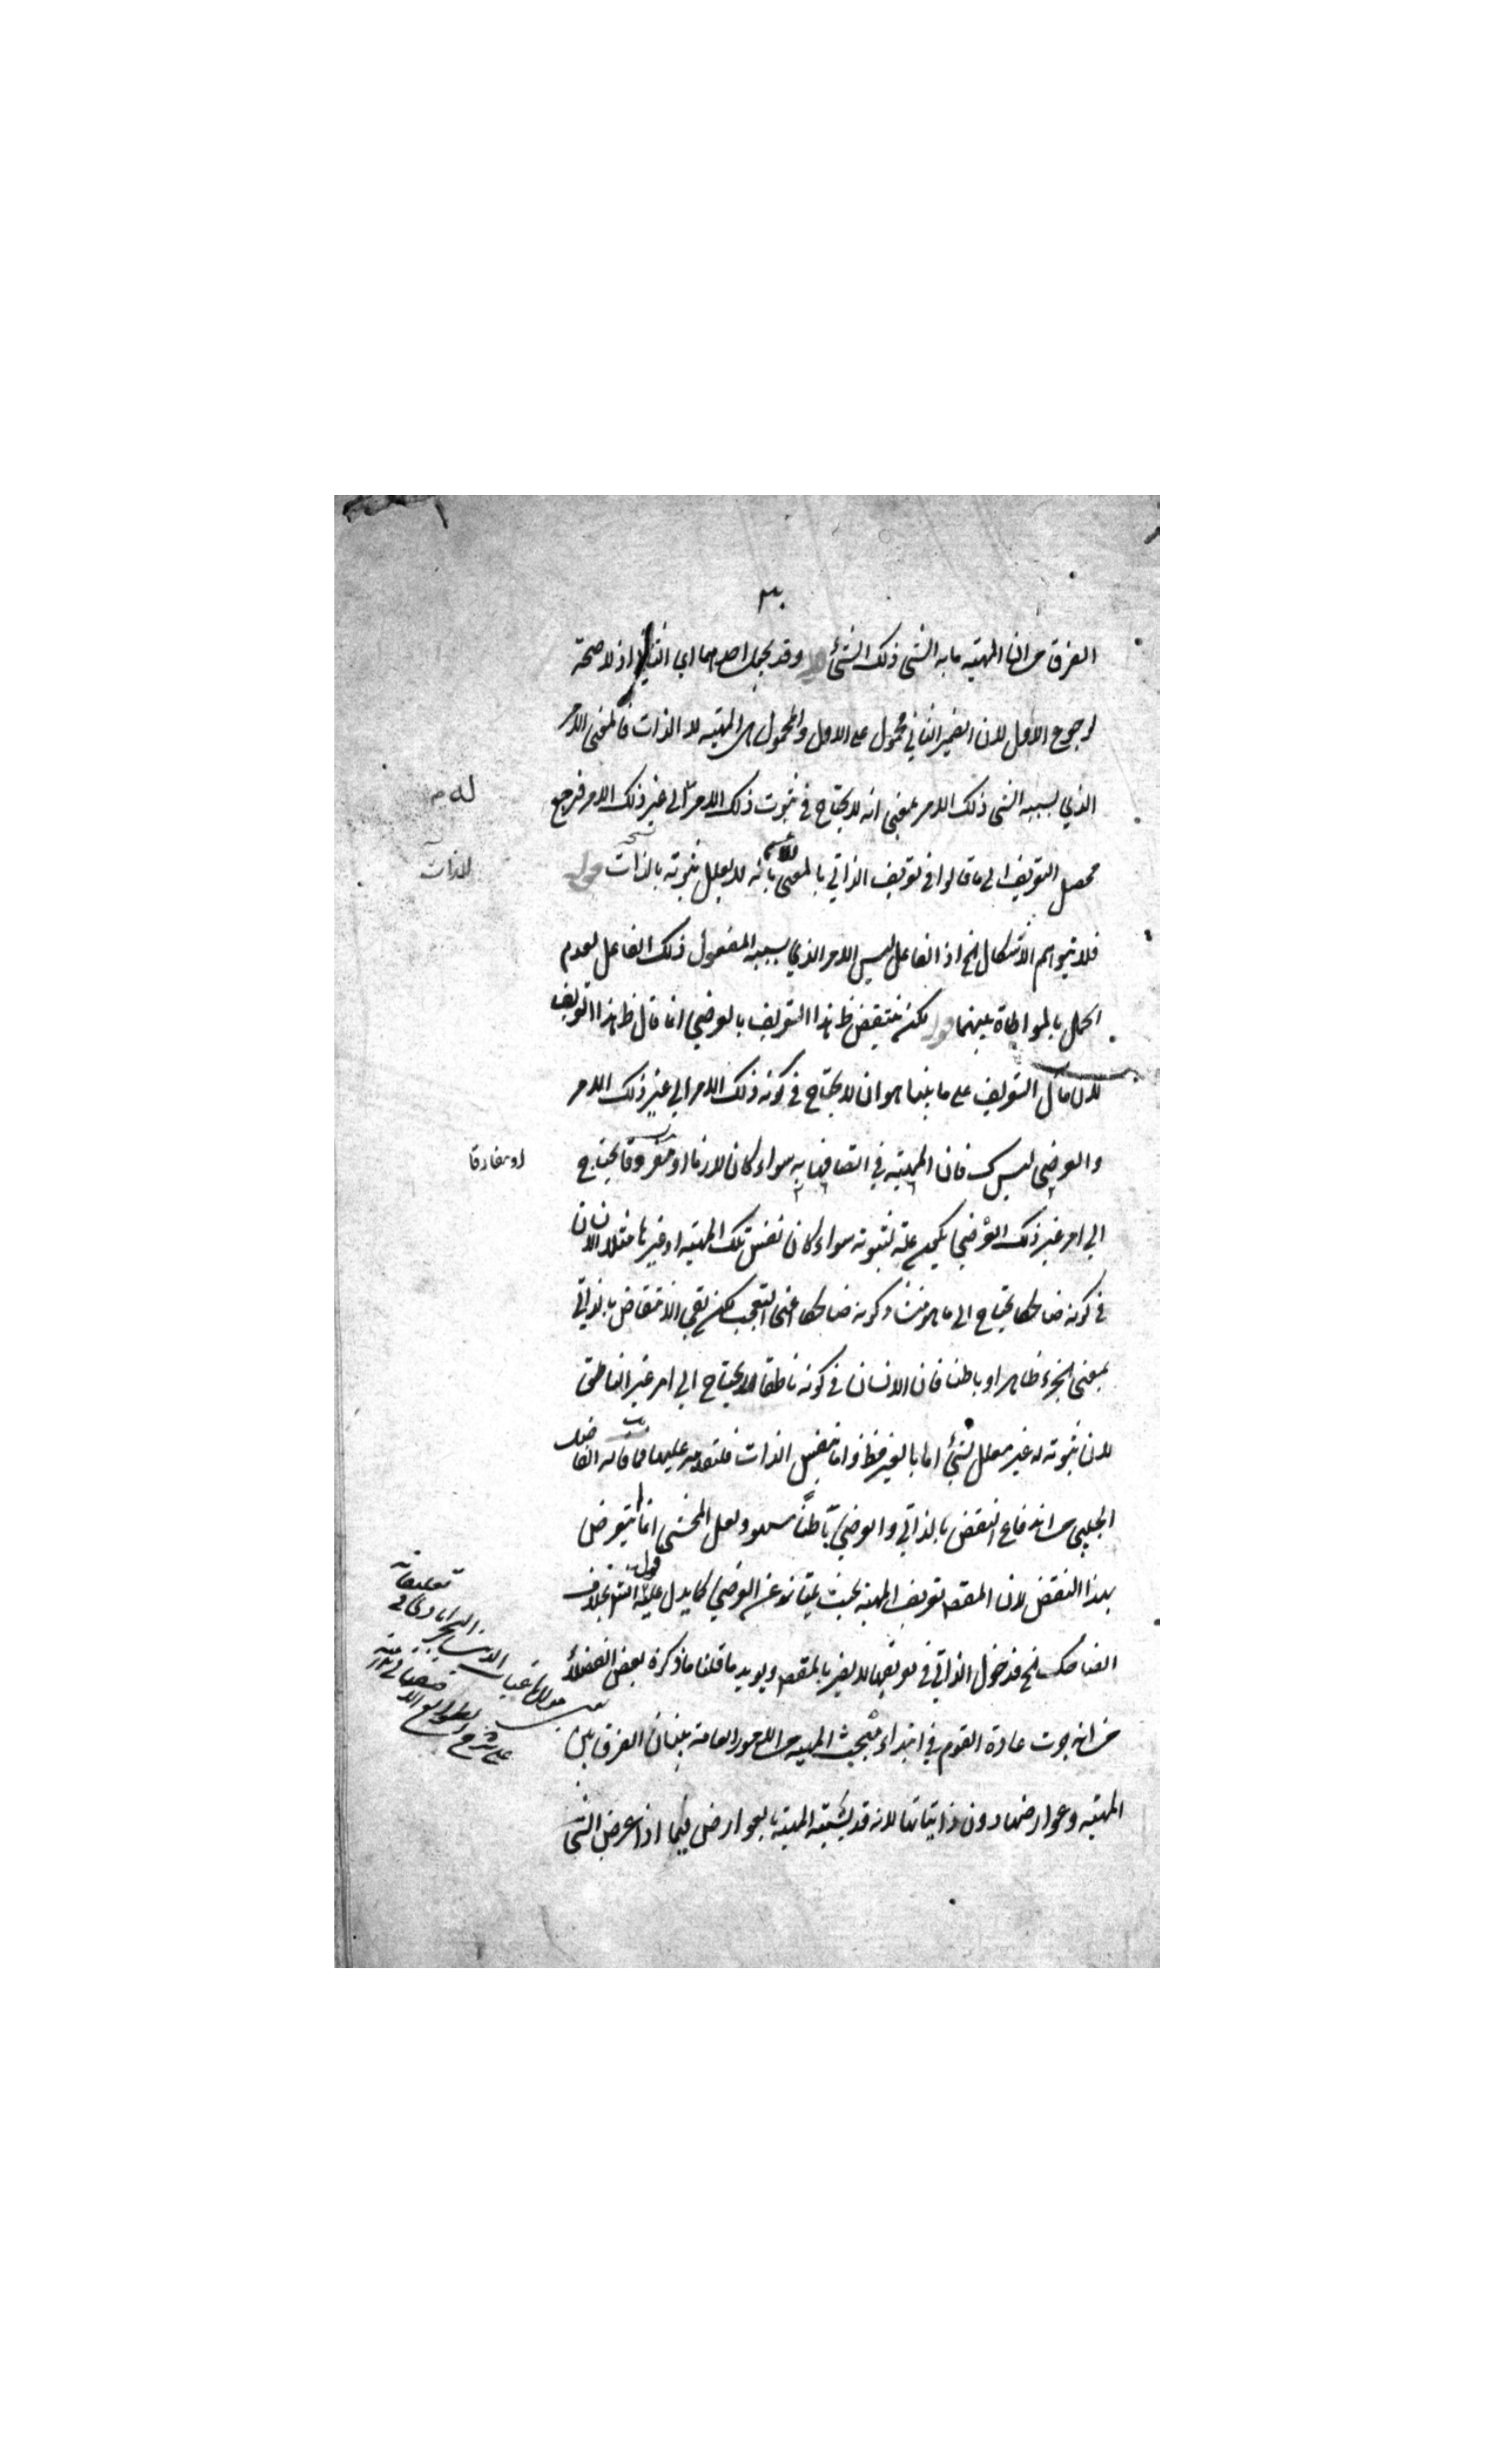 ٣٠
الفرق من ان المهية ما به الشي ذلك الشئ وقد يجعل احدهما اي الثاني اذ لا صحة
لرجوع الاول لان الضمير الثاني محمول على الاول والمحمول هي المهية لا الذات فالمعنى الامر
الذي بسببه الشي ذلك الامر بمعنى انه لا يحتاج في ثبوت ذلك الامر الى غير ذلك الامر فرجع
له
محصل التعريف الى ما قالوا في تعريف الذاتي بالمعنى الاعم بانه لا يعلل ثبوته بالذات قوله
للذات
فلا يتوهم الاشكال الخ اذ الفاعل ليس الامر الذي بسببه المفعول ذلك الفاعل لعدم
الحمل بالمواطاة بينهما قوله لكن ينتقض ظ هذا التعريف بالعرضي انما قال ظ هذا التعريف
لان مآل التعريف على ما بينا هو ان لا يحتاج في كونه ذلك الامر الى غير ذلك الامر
والعرضي ليس ك فان المهية في اتصافها به سواء كان لازما او مفروقا يحتاج
او مفارقا
الى امر غير ذلك العرضي يكون علة لثبوته سواء كان نفس تلك المهية او غيرها مثلا الانسان
في كونه ضاحكا يحتاج الى ما هو منشأ كونه ضاحكا اعنى التعجب لكن بقي الانتقاض بالذاتي
بمعنى الجزء ظاهرا وباطنا فان الانسان في كونه ناطقا لا يحتاج الى امر غير الناطق
لان ثبوته له غير معلل بشئ اما بالغير فظ واما بنفس الذات فلتقدمه عليها فما قاله الفاضل
الجلبي من اندفاع النقض بالذاتي والعرضي باطنا سهو ولعل المحشي انما لم يتعرض
بهذا النقض لان المقصد تعريف المهية بحيث يمتاز عن العرضي كما يدل عليه قول الش بخلاف
الضاحك الخ فدخول الذاتي في تعريفها لا يضر بالمقصد ويويد ما قلنا ما ذكره بعض الفضلاء
من انه جرت عادة القوم في ابتداء مبحث المهية من الامور العامة ببيان الفرق بين
المهية وعوارضها دون ذاتياتها لانه قد يشتبه المهية بالعوارض فيما اذا عرض الشئ
تعليقات
على شرح